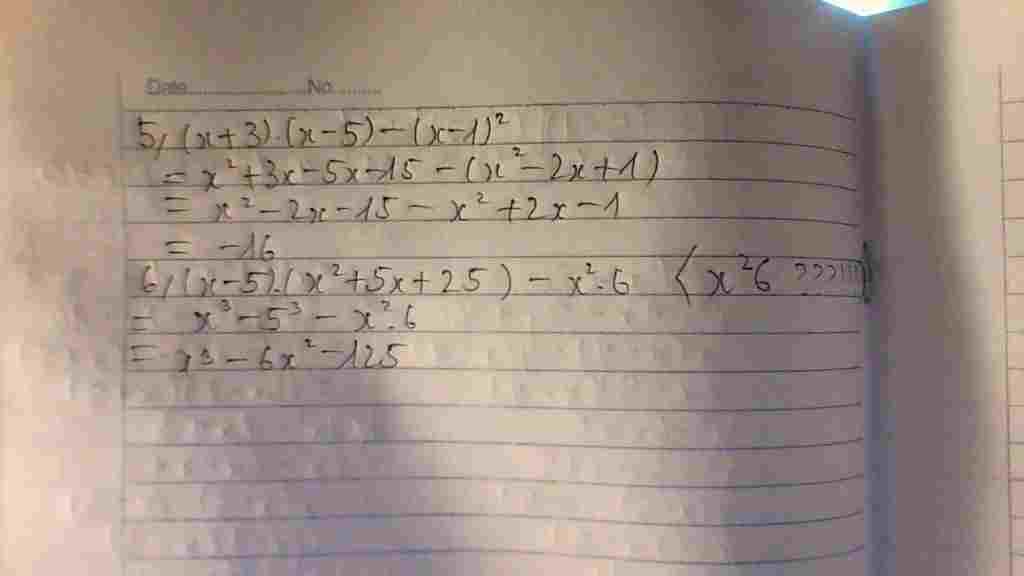 Date.....................No..........
5, (x+3).(x-5)-(x-1)²
= x²+3x-5x-15-(x²-2x+1)
= x²-2x-15-x²+2x-1
= -16
6, (x-5).(x²+5x+25)-x².6 (x²6 ???!!!!)
= x³-5³-x².6
= x³-6x²-125